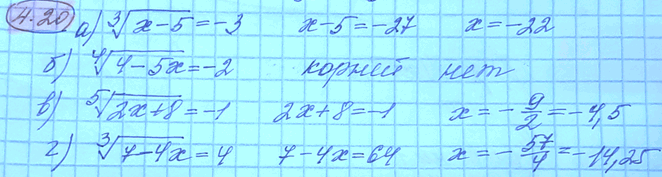 4.20 а) ∛(x-5) = -3    x-5 = -27    x = -22
б) ∜(4-5x) = -2    корней нет
в) ⁵√(2x+8) = -1    2x+8 = -1    x = -9/2 = -4,5
г) ∛(7-4x) = 4    7-4x = 64    x = -57/4 = -14,25